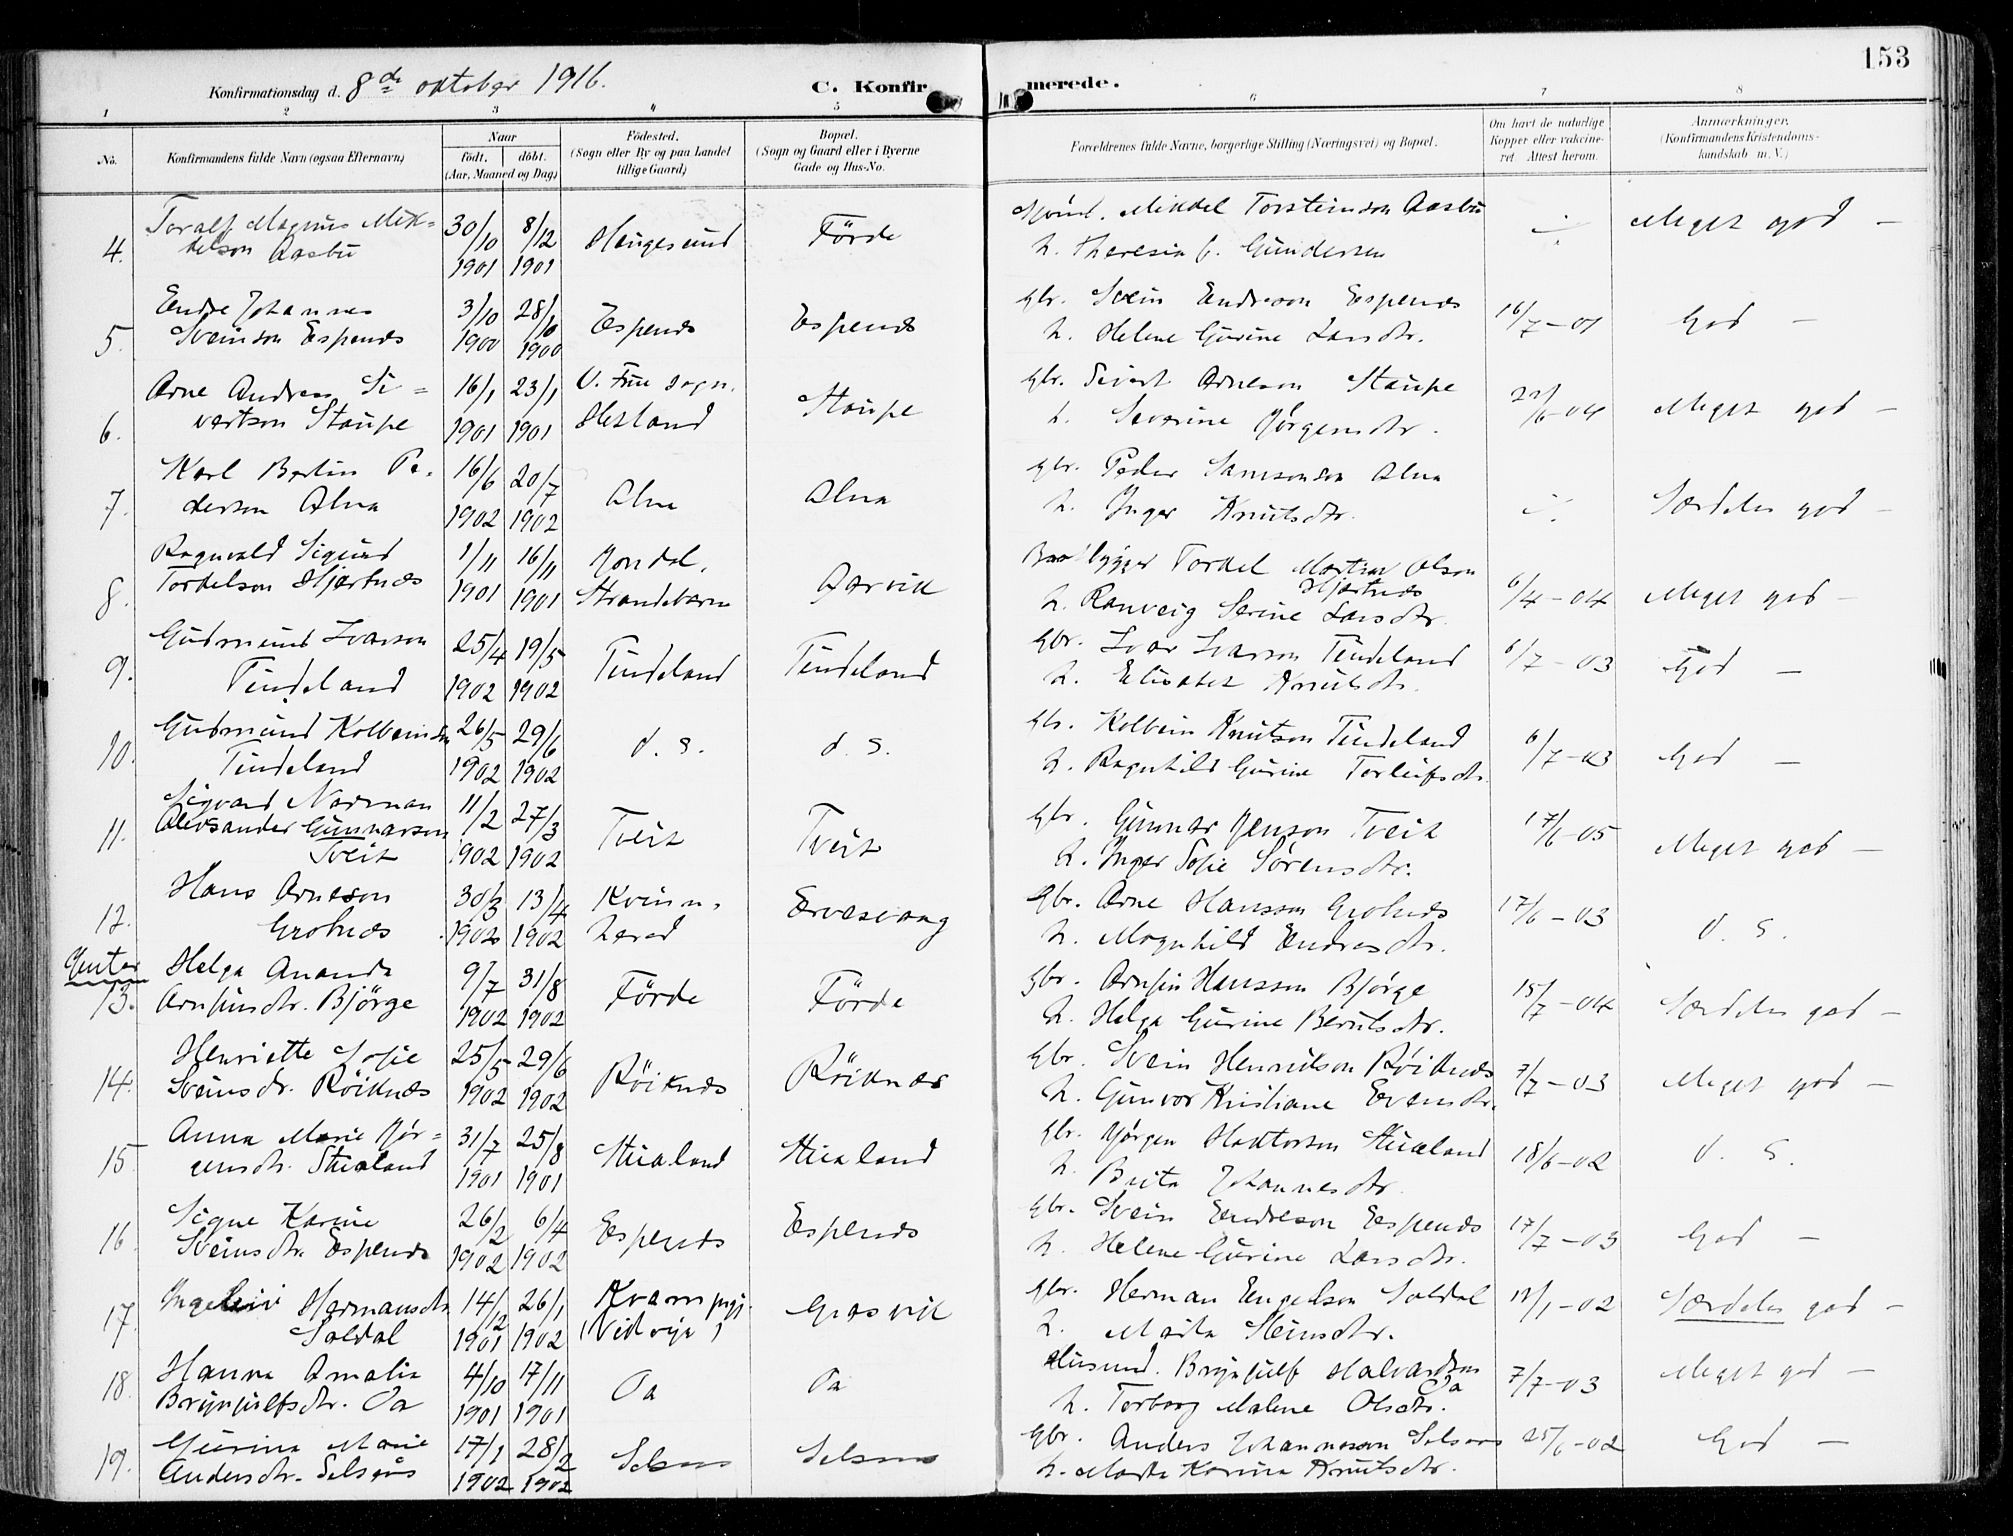 153
Konfirmationsdag d. 8de oktober 1916.
C. Konfirmerede.
1 2 3 4 5 6 7 8
No.
Konfirmandens fulde Navn (ogsaa Efternavn)
Naar
födt. döbt.
(Aar, Maaned og Dag)
Födested.
(Sogn eller By og paa Landet
tillige Gaard)
Bopæl.
(Sogn og Gaard eller i Byerne
Gade og Hus-No.
Forældrenes fulde Navne, borgerlige Stilling (Næringsvei) og Bopæl.
Om havt de naturlige
Kopper eller vakcine-
ret Attest herom.
Anmærkninger.
(Konfirmandens Kristendoms-
kundskab m. V.)
4. Toralf Magnus Mik=
kelson Aasbu
30/10 1901 8/12 1901
Haugesund
Förde
Mikkel Torsteinson Aasbu
h. Theresia f. Gundersen
÷
Meget god —
5. Endre Johannes
Sveinson Espenæs
3/10 1900 28/10 1900
Espenæs
Espenæs
gbr. Svein Endreson Espenæs
h. Helene Gurine Larsdtr.
16/7 - 01
God —
6. Arne Andreas Si=
vertson Staupe
16/1 1901 23/1 1901
V. Frue sogn.
Hetland
Staupe
gbr. Sivert Arneson Staupe
h. Severine Jörgensdtr.
Meget god —
7. Karl Bertin Pe-
derson Alna
16/6 1902 20/7 1902
Alna
Alna
gbr. Peder Samsonson Alna
h. Inger Knutsdtr.
÷
Særdeles god —
8. Ragnvald Sigurd
Torkelson Hjertnæs
1/11 1901 16/11 1901
Jondal,
Strandebarm
Gjervik
Baatbygger Torkel Martin Olson
Hjertnæs
h. Ranveig Serine Larsdtr.
6/4 - 04
Meget god —
9. Gudmund Ivarson
Tindeland
25/4 1902 19/5 1902
Tindeland
Tindeland
gbr. Ivar Ivarson Tindeland
h. Elisabet Knutsdtr.
6/7 - 03
God —
10. Gudmund Kolbeinson
Tindeland
26/5 1902 29/6 1902
d. s.
d. s.
gbr. Kolbein Knutson Tindeland
h. Ragnhild Gurine Torleifsdtr.
6/7 - 03
God —
11. Sigvard Norman
Aleksander Gunnarson
Tveit
11/2 1902 27/3 1902
Tveit
Tveit
gbr. Gunnar Jenson Tveit
h. Inger Sofie Sörensdtr.
17/6 - 05
Meget god —
12. Hans Arneson
Grotnæs
30/3 1902 13/4 1902
Kvinn-
herad
Ervesvaag
gbr. Arne Hansson Grotnæs
h. Magnhild Endresdtr.
17/6 - 03
d. s.
Jenter
13. Helga Ananda
Arnfinsdtr. Björge
9/7 1902 31/8 1902
Förde
Förde
gbr. Arnfin Hansson Björge
h. Helga Gurine Berntsdtr.
15/7 - 04
Særdeles god —
14. Henriette Sofie
Sveinsdtr. Röiknæs
25/5 1902 29/6 1902
Röiknæs
Röiknæs
gbr. Svein Henrikson Röiknæs
h. Gunvor Kristiane Evensdtr.
7/7 - 03
Meget god —
15. Anna Marie Jör=
gensdtr. Stualand
31/7 1901 25/8 1901
Stualand
Stualand
gbr. Jörgen Haktorson Stualand
h. Brita Johannesdtr.
18/6 - 02
d. s.
16. Signe Karine
Sveinsdtr. Espenæs
26/2 1902 6/4 1902
Espenæs
Espenæs
gbr. Svein Endreson Espenæs
h. Helene Gurine Larsdtr.
17/7 - 03
God —
17. Hermansdtr.
Soldal
14/12 1901 26/1 1902
Kvam pgj.
Grasvik
gbr. Herman Engelson Soldal
h. Marta Steinsdtr.
Særdeles god —
18. Hanna Amalia
Brynjulfsdtr. Oa
4/10 1901 17/11 1901
Oa
Oa
Husmd. Brynjulf Halvardson
Oa
h. Torborg Malene Olsdtr.
7/7 - 03
Meget god —
19. Gurina Marie
Andersdtr. Selsaas
17/1 1902 28/2 1902
Selsaas
Selsaas
gbr. Anders Johannesson Selsaas
h. Marta Karina Knutsdtr.
25/6 - 02
God —